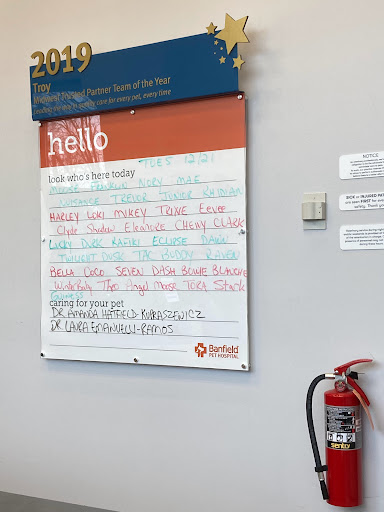 2019
Troy
Midwest Trusted Partner Team of the Year
Leading the way in quality care for every pet, every time
hello
look who's here today
TUES 12/21
FRANKLIN NORY MAE
NUISANCE TREVOR JUNIOR RHIDIAN
HARLEY LOKI MIKEY TRINE EEVEE
Clyde Shadow ELEANORE CHEWY CLARK
LUCKY DUKE RAFIKI ECLIPSE DAWN
TWILIGHT DUSK TAC BUDDY RAVEN
BELLA COCO SEVEN DASH BOWIE BLANCHE
Theo Angel Moose TORA Stark
Guinness
caring for your pet
DR AMANDA HATFIELD-KUKRASZEWICZ
DR LAURA EMANUELLI-RAMOS
Banfield
PET HOSPITAL
NOTICE
SICK or INJURED
sentry